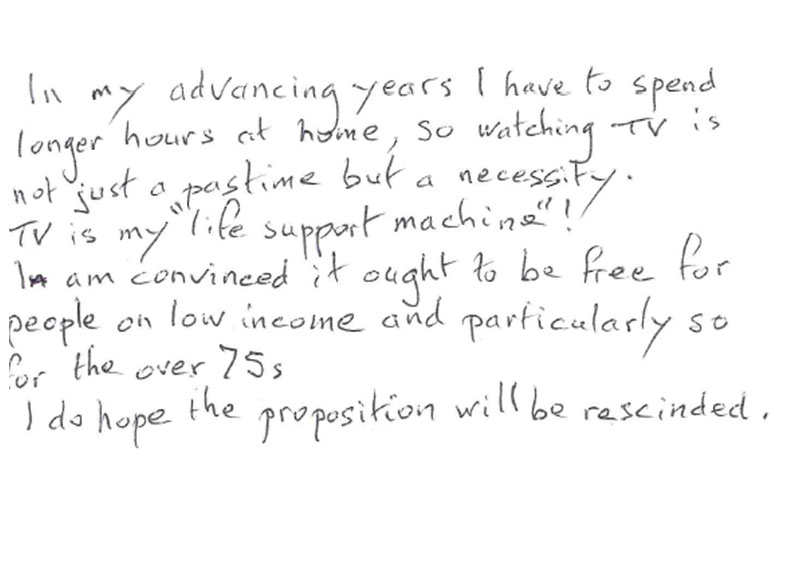 In my advancing years I have to spend
longer hours at home, so watching TV is
not just a pastime but a necessity.
TV is my "life support machine"!
I am convinced it ought to be free for
people on low income and particularly so
for the over 75s
I do hope the proposition will be rescinded.